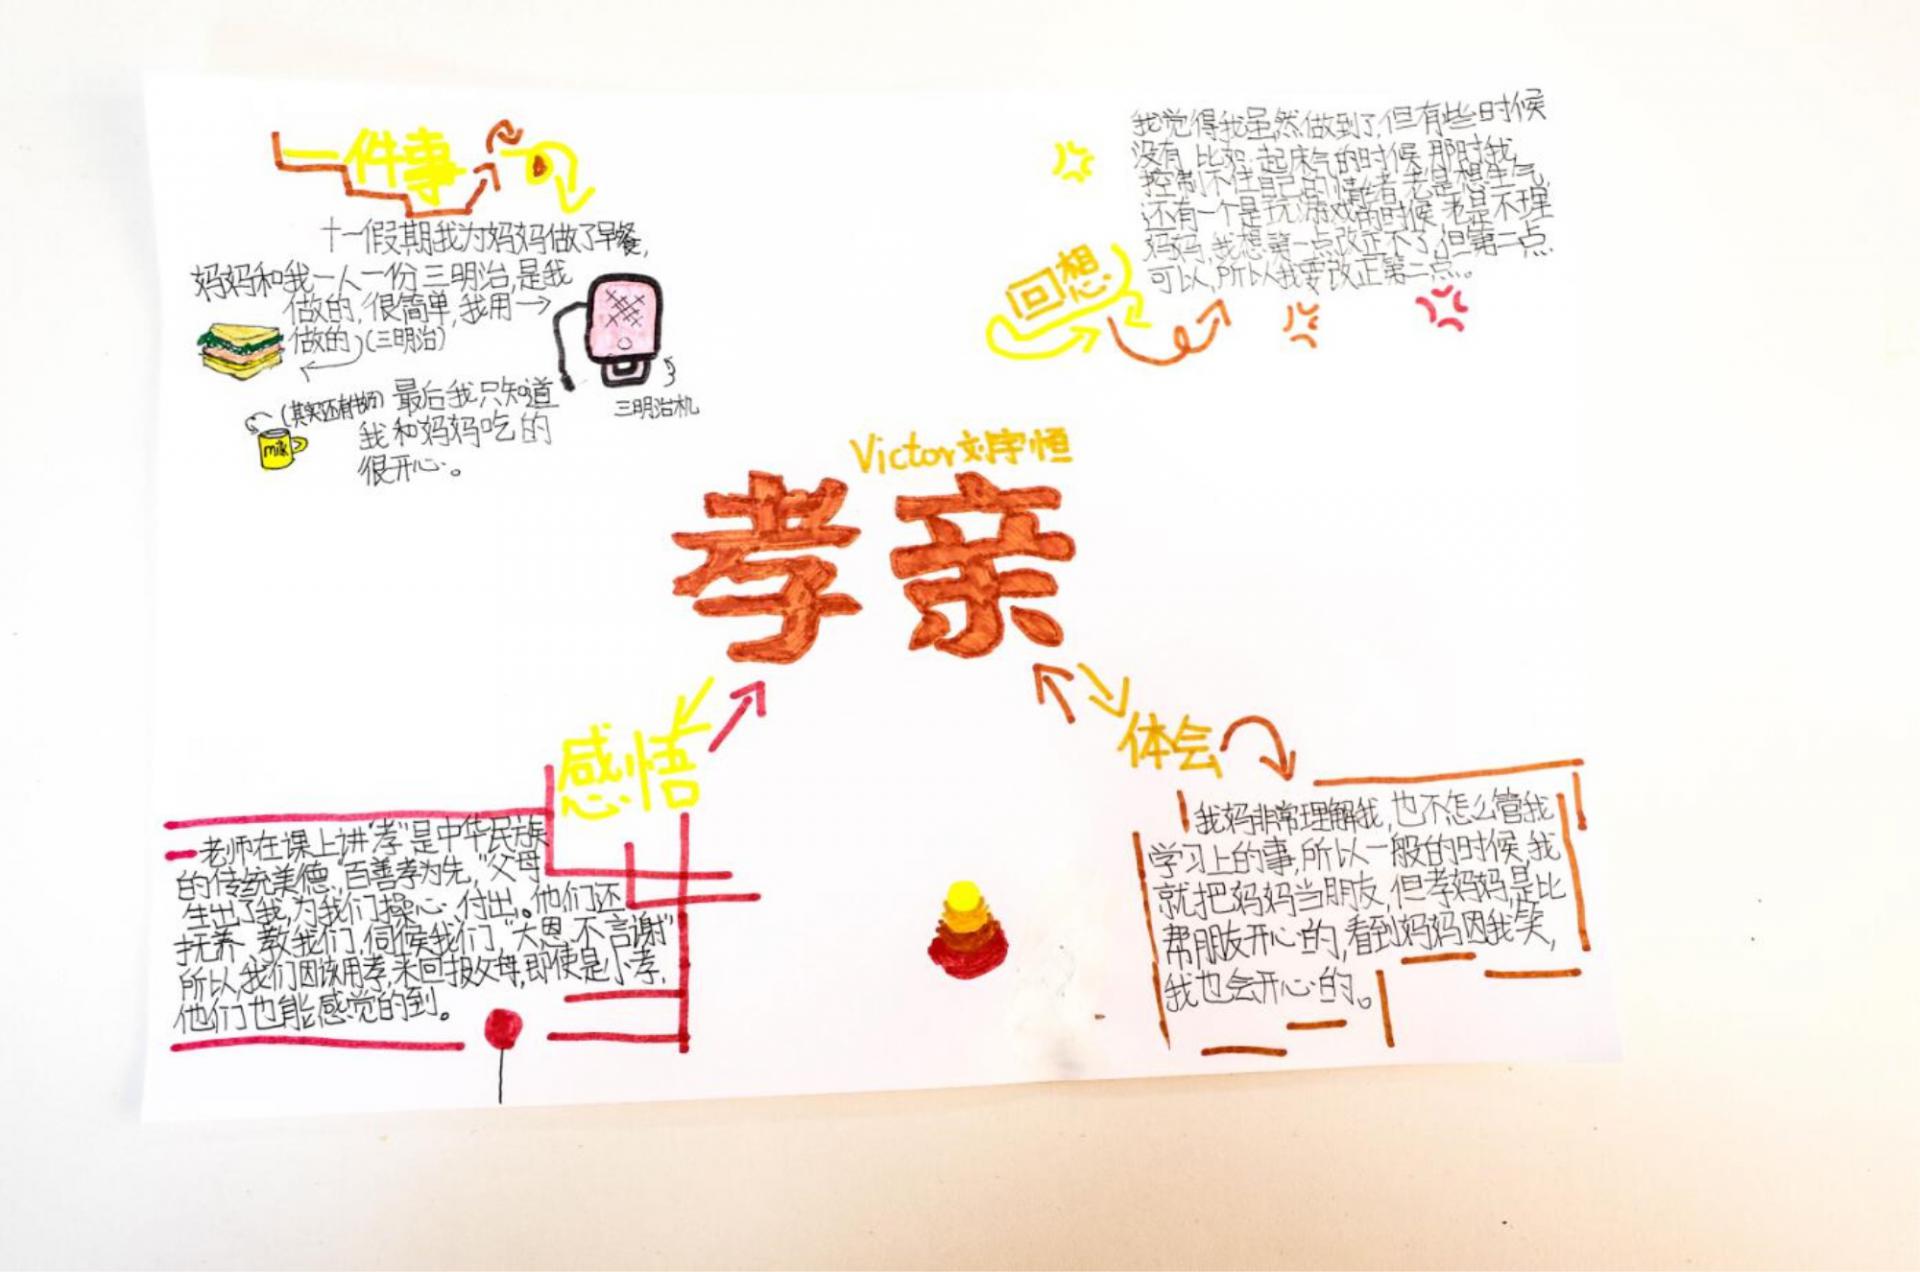 一件事
十一假期我为妈妈做了早餐,
妈妈和我一人一份三明治,是我
做的,很简单,我用→
做的(三明治)
三明治机
(其实还有牛奶)最后我只知道
milk
我和妈妈吃的
很开心。
我觉得我虽然做到了,但有些时候
没有,比如:起床气的时候,那时我
控制不住自己的情绪,老是想生气,
还有一个是玩游戏的时候,老是不理
妈妈,我想第一点改正不了,但第二点
可以,所以我要改正第二点。
回想
Victor刘宇恒
孝亲
感悟
老师在课上讲“孝”是中华民族
的传统美德“百善孝为先,”父母
生出了我,为我们操心、付出。他们还
抚养、教我们,伺候我们,“大恩不言谢”
所以,我们因该用孝,来回报父母,即使是小孝,
他们也能感觉的到。
体会
我妈非常理解我,也不怎么管我
学习上的事,所以一般的时候,我
就把妈妈当朋友,但孝妈妈,是比
帮朋友开心的,看到妈妈因我笑,
我也会开心的。